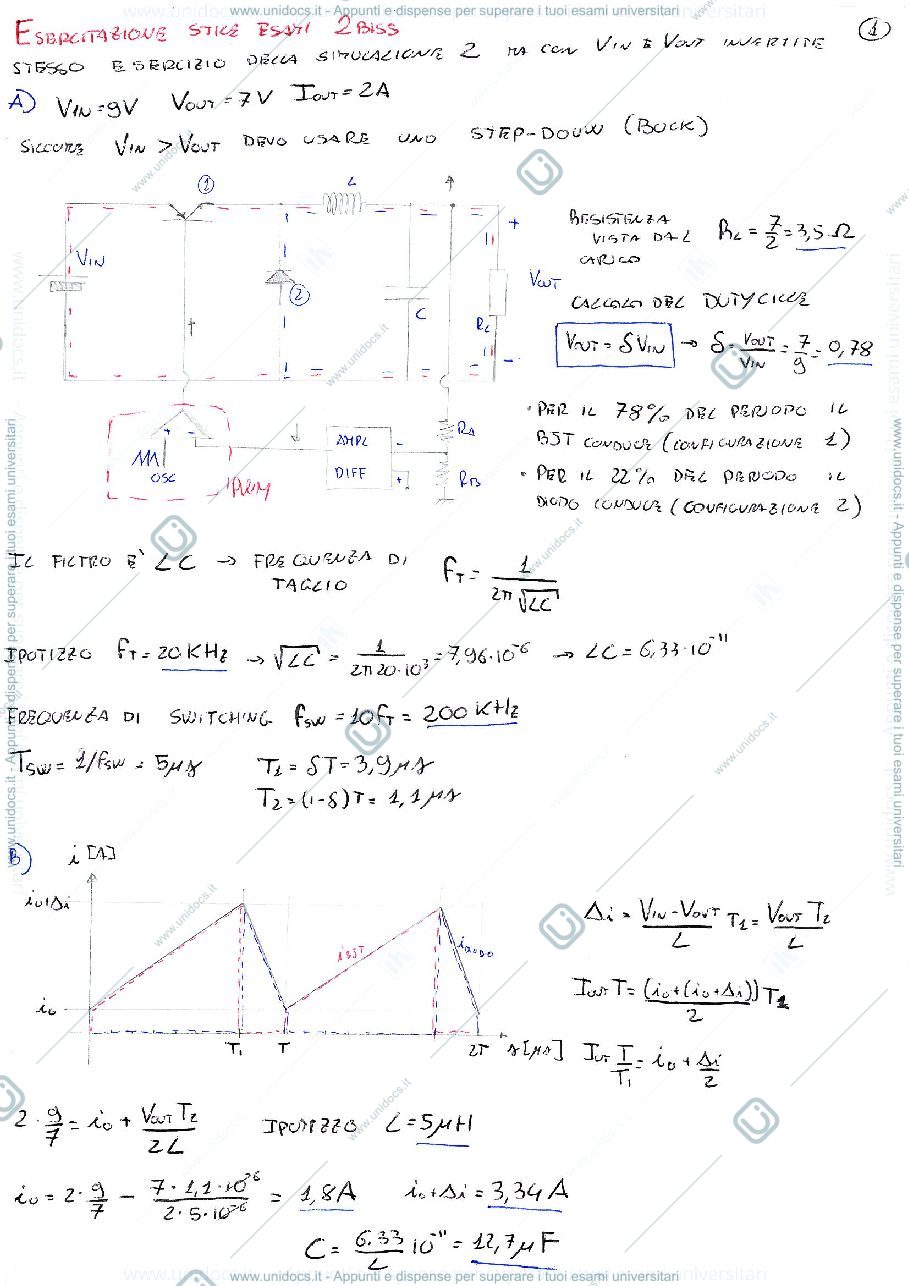 www.unidocs.it - Appunti e dispense per superare i tuoi esami universitari
ESERCITAZIONE STICE ESAMI 2BISS
1
STESSO ESERCIZIO DELLA SIMULAZIONE 2 MA CON VIN E VOUT INVERTITE
A) VIN=9V VOUT=7V IOUT=2A
SICCOME VIN > VOUT DEVO USARE UNO STEP-DOWN (BUCK)
1
L
+
VIN
2
C
RL
VOUT
-
RESISTENZA
VISTA DAL
CARICO
RL = 7/2 = 3,5 Ω
CALCOLO DEL DUTYCICLE
VOUT = δ VIN → δ = VOUT/VIN = 7/9 = 0,78
+ -
OSC
PWM
AMPL
DIFF
-
+
RA
RB
• PER IL 78% DEL PERIODO IL
BJT CONDUCE (CONFIGURAZIONE 1)
• PER IL 22% DEL PERIODO IL
DIODO CONDUCE (CONFIGURAZIONE 2)
IL FILTRO E' LC → FREQUENZA DI
TAGLIO
fT = 1/(2π √LC)
IPOTIZZO fT = 20 KHz → √LC = 1/(2π 20·10³) = 7,96·10⁻⁶ → LC = 6,33·10⁻¹¹
FREQUENZA DI SWITCHING fSW = 10fT = 200 KHz
TSW = 1/fSW = 5μs T1 = δT = 3,9μs
T2 = (1-δ)T = 1,1μs
B)
i [A]
i0+Δi
iBJT
iDIODO
i0
T1
T
2T
s[μs]
Δi = (VIN-VOUT)/L T1 = VOUT T2/L
IOUT T = (i0+(i0+Δi))/2 T1
IOUT T/T1 = i0 + Δi/2
2·9/7 = i0 + VOUT T2/2L IPOTIZZO L=5μH
i0 = 2·9/7 - 7·1,1·10⁻⁶/2·5·10⁻⁶ = 1,8A i0+Δi = 3,34A
C = 6.33/L 10⁻¹¹ = 12,7μF
www.unidocs.it - Appunti e dispense per superare i tuoi esami universitari